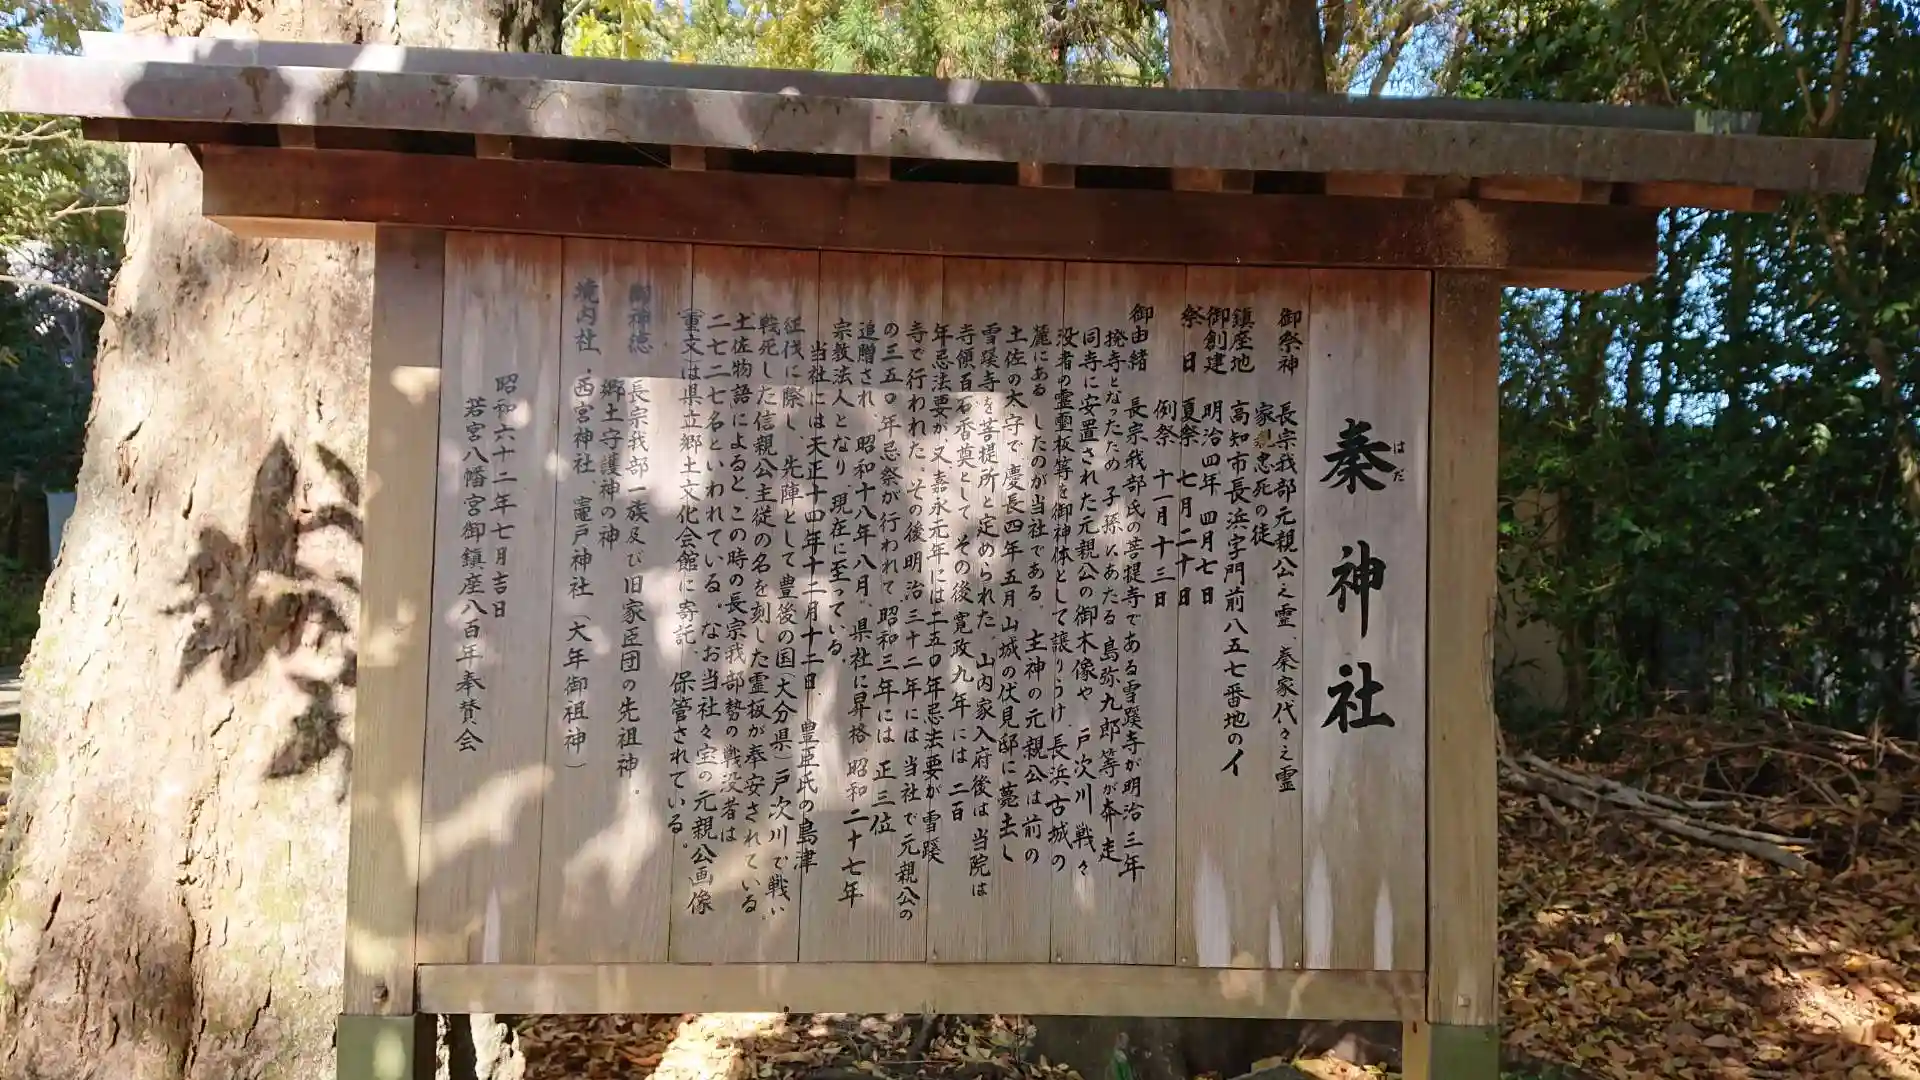 秦神社
はだ
御祭神　長宗我部元親公之霊、秦家代々之霊
家親忠死の徒
鎮産地　高知市長浜字門前八五七番地のイ
御創建　明治四年　四月七日
祭日　夏祭　七月二十日
例祭　十一月十三日
御由緒　長宗我部氏の菩提寺である雪蹊寺が明治三年
廃寺となったため子孫にあたる島弥九郎等が奔走
同寺に安置された元親公の御木像や、戸次川戦々
没者の霊板等を御神体として譲りうけ、長浜古城の
麓にある　したのが当社である。主神の元親公は前の
土佐の大守で、慶長四年五月山城の伏見邸に薨去し
雪蹊寺を菩提所と定められた。山内家入府後は当院は
寺領百石香奠として、その後寛政九年には二百
年忌法要が、又嘉永元年には二五〇年忌法要が雪蹊
寺で行われた。その後明治三十二年には当社で元親公の
の三五〇年忌祭が行われて昭和三年には正三位
追贈され、昭和十八年八月、県社に昇格、昭和二十七年
宗教法人となり、現在に至っている。
当社には天正十四年十二月十二日、豊臣氏の島津
征伐に際し、先陣として豊後の国(大分県)戸次川で戦い
戦死した信親公主従の名を刻した霊板が奉安されている。
土佐物語によると、この時の長宗我部勢の戦没者は
二七二七名といわれている。なお当社々宝の元親公画像
(重文)は県立郷土文化会館に寄託、保管されている。
御神徳　長宗我部一族及び旧家臣団の先祖神。
郷土守護神の神
境内社　西宮神社、竈戸神社(大年御祖神)
昭和六十二年七月吉日
若宮八幡宮御鎮座八百年奉賛会